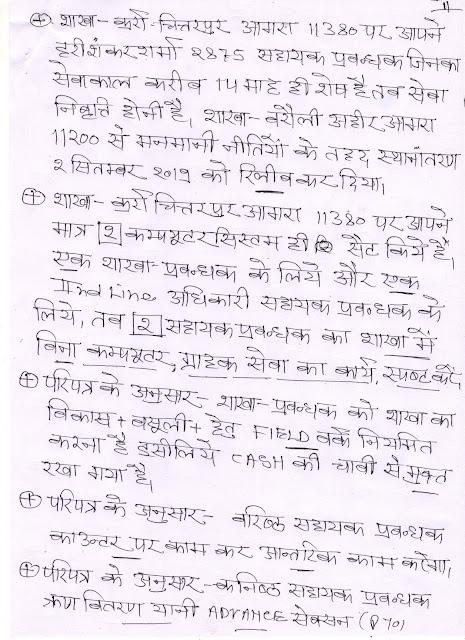 ⊕ शाखा- कुर्रा-चित्तरपुर आगरा 11380 पर आपने
हरीशंकर शर्मा २875 सहायक प्रबन्धक जिनका
सेवाकाल करीब 14 माह ही शेष है, तब सेवा
निवृति होनी है, शाखा- बरौली अहीर आगरा
11200 से मनमानी नीतियों के तहद स्थानांतरण
२ सितम्बर २०१9 को रिलीव कर दिया,
⊕ शाखा- कुर्रा चित्तरपुर आगरा 11380 पर आपने
मात्र २ कम्प्यूटर सिस्टम ही सैट किये हैं,
एक शाखा- प्रबन्धक के लिये और एक
IInd Line अधिकारी सहायक प्रबन्धक के
लिये, तब २ सहायक प्रबन्धक का शाखा में
बिना कम्प्यूटर, ग्राहक सेवा का कार्य, स्पष्ट करें,
⊕ परिपत्र के अनुसार- शाखा- प्रबन्धक को शाखा का
विकास + वसूली + हेतु FIELD वर्क नियमित
करना है इसीलिये CASH की चाबी से मुक्त
रखा गया है,
⊕ परिपत्र के अनुसार- वरिष्ठ सहायक प्रबन्धक
काउन्टर पर काम कर आन्तरिक काम करेगा,
⊕ परिपत्र के अनुसार- कनिष्ठ सहायक प्रबन्धक
ऋण वितरण यानी ADVANCE सेक्सन